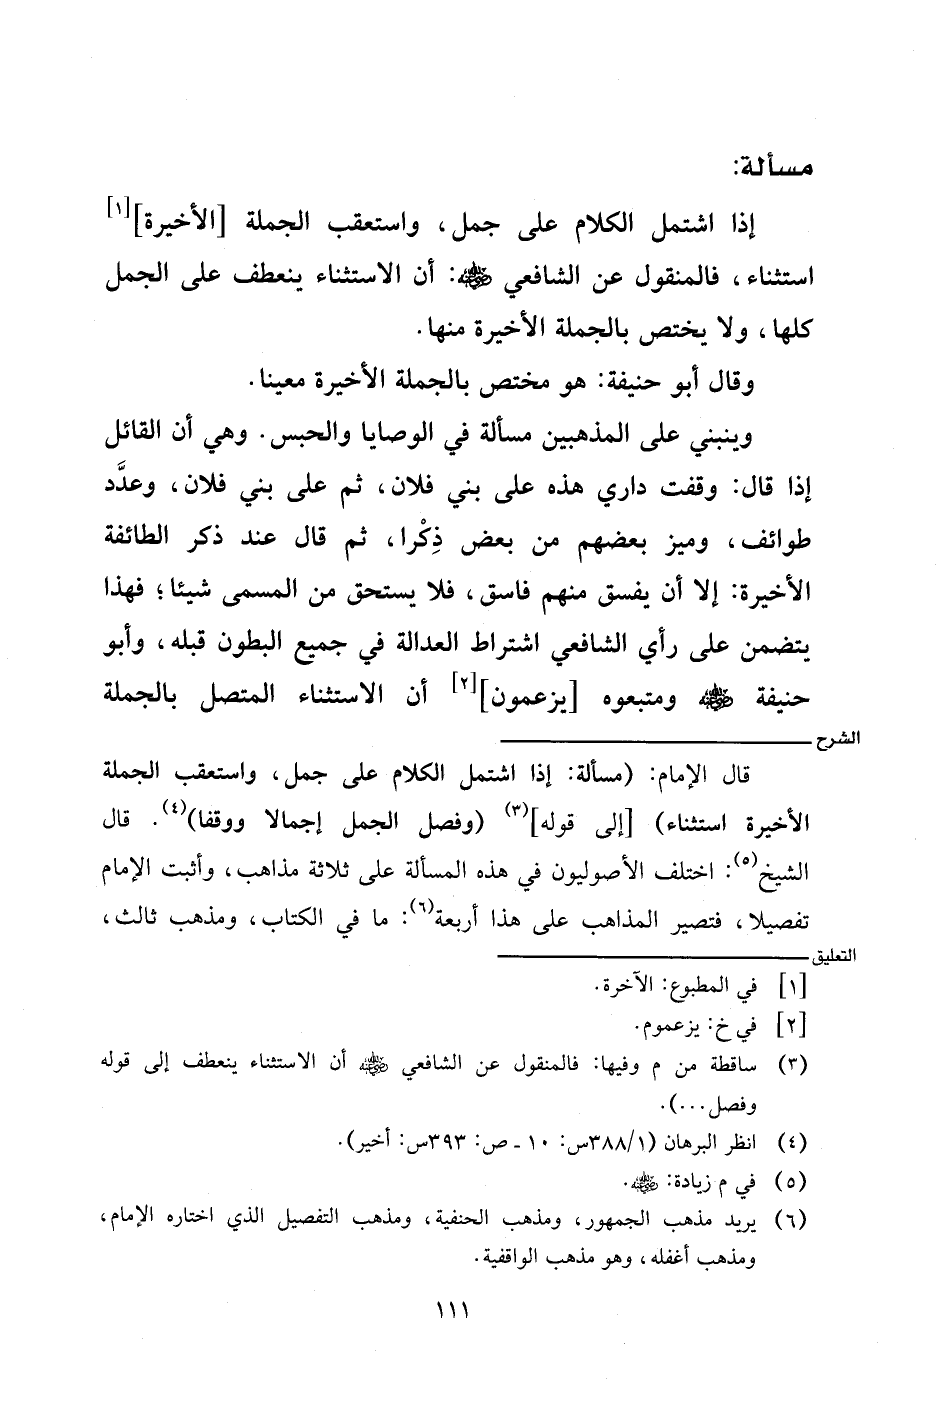 مسألة:
إذا اشتمل الكلام على جمل، واستعقب الجملة [الأخيرة][١]
استثناء، فالمنقول عن الشافعي رضي الله عنه: أن الاستثناء ينعطف على الجمل
كلها، ولا يختص بالجملة الأخيرة منها.
وقال أبو حنيفة: هو مختص بالجملة الأخيرة معينا.
وينبني على المذهبين مسألة في الوصايا والحبس. وهي أن القائل
إذا قال: وقفت داري هذه على بني فلان، ثم على بني فلان، وعدَّد
طوائف، وميز بعضهم من بعض ذِكْرا، ثم قال عند ذكر الطائفة
الأخيرة: إلا أن يفسق منهم فاسق، فلا يستحق من المسمى شيئا؛ فهذا
يتضمن على رأي الشافعي اشتراط العدالة في جميع البطون قبله، وأبو
حنيفة رضي الله عنه ومتبعوه [يزعمون][٢] أن الاستثناء المتصل بالجملة
الشرح
قال الإمام: (مسألة: إذا اشتمل الكلام على جمل، واستعقب الجملة
الأخيرة استثناء) [إلى قوله](٣) (وفصل الجمل إجمالا ووقفا)(٤). قال
الشيخ(٥): اختلف الأصوليون في هذه المسألة على ثلاثة مذاهب، وأثبت الإمام
تفصيلا، فتصير المذاهب على هذا أربعة(٦): ما في الكتاب، ومذهب ثالث،
التعليق
[١] في المطبوع: الآخرة.
[٢] في خ: يزعموم.
(٣) ساقطة من م وفيها: فالمنقول عن الشافعي رضي الله عنه أن الاستثناء ينعطف إلى قوله
وفصل...).
(٤) انظر البرهان (٣٨٨/١س: ١٠ ـ ص: ٣٩٣س: أخير).
(٥) في م زيادة: رضي الله عنه.
(٦) يريد مذهب الجمهور، ومذهب الحنفية، ومذهب التفصيل الذي اختاره الإمام،
ومذهب أغفله، وهو مذهب الواقفية.
١١١